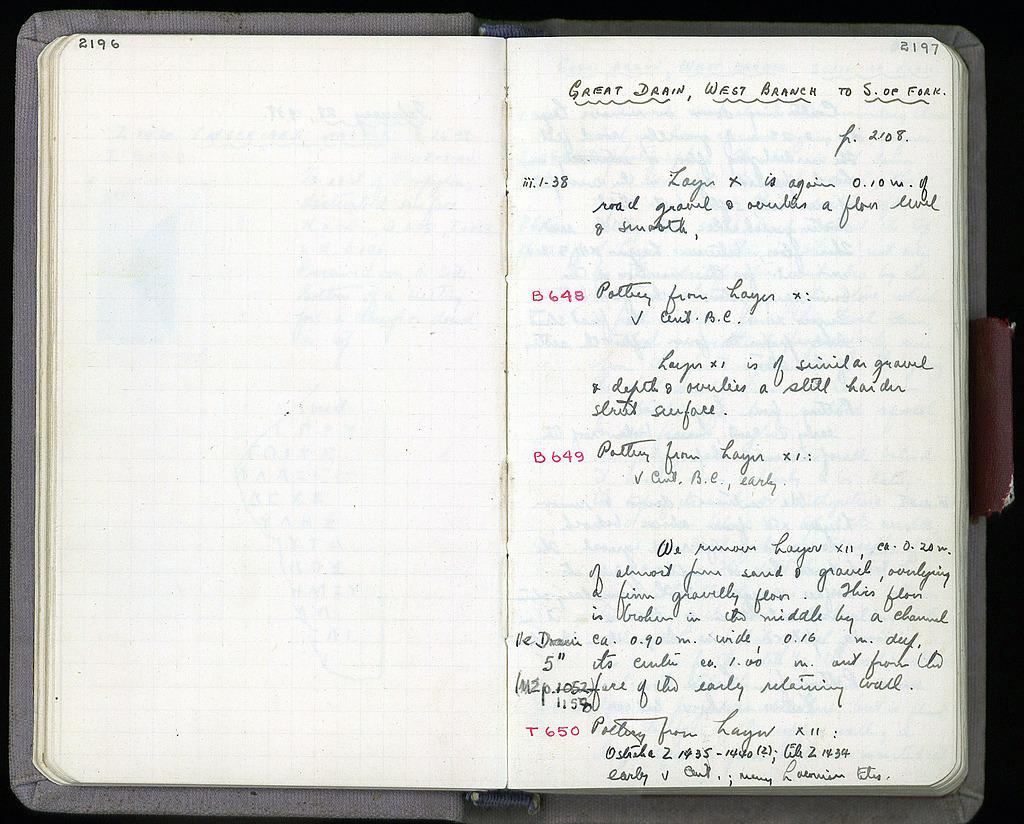 2196
2197
GREAT DRAIN, WEST BRANCH TO S. OF FORK.
p. 2108.
iii.1-38 Layer X is again 0.10 m. of
road gravel & overlies a floor level
& smooth,
B 648 Pottery from Layer X:
V Cent. B.C.
Layer XI is of similar gravel
& depth & overlies a still harder
street surface.
B 649 Pottery from Layer XI:
V Cent. B.C., early.
We remove Layer XII, ca. 0.20 m.
of almost pure sand & gravel, overlying
a firm gravelly floor. This floor
is broken in the middle by a channel
ca. 0.90 m. wide, 0.16 m. deep,
5" its centre ca. 1.00 m. out from the
(MΣ p. 1052) face of the early retaining wall.
1158
T 650 Pottery from Layer XII:
Ostraka Z 1435-1440 (2); tile Z 1434
early V Cent.; many Laconian tiles.